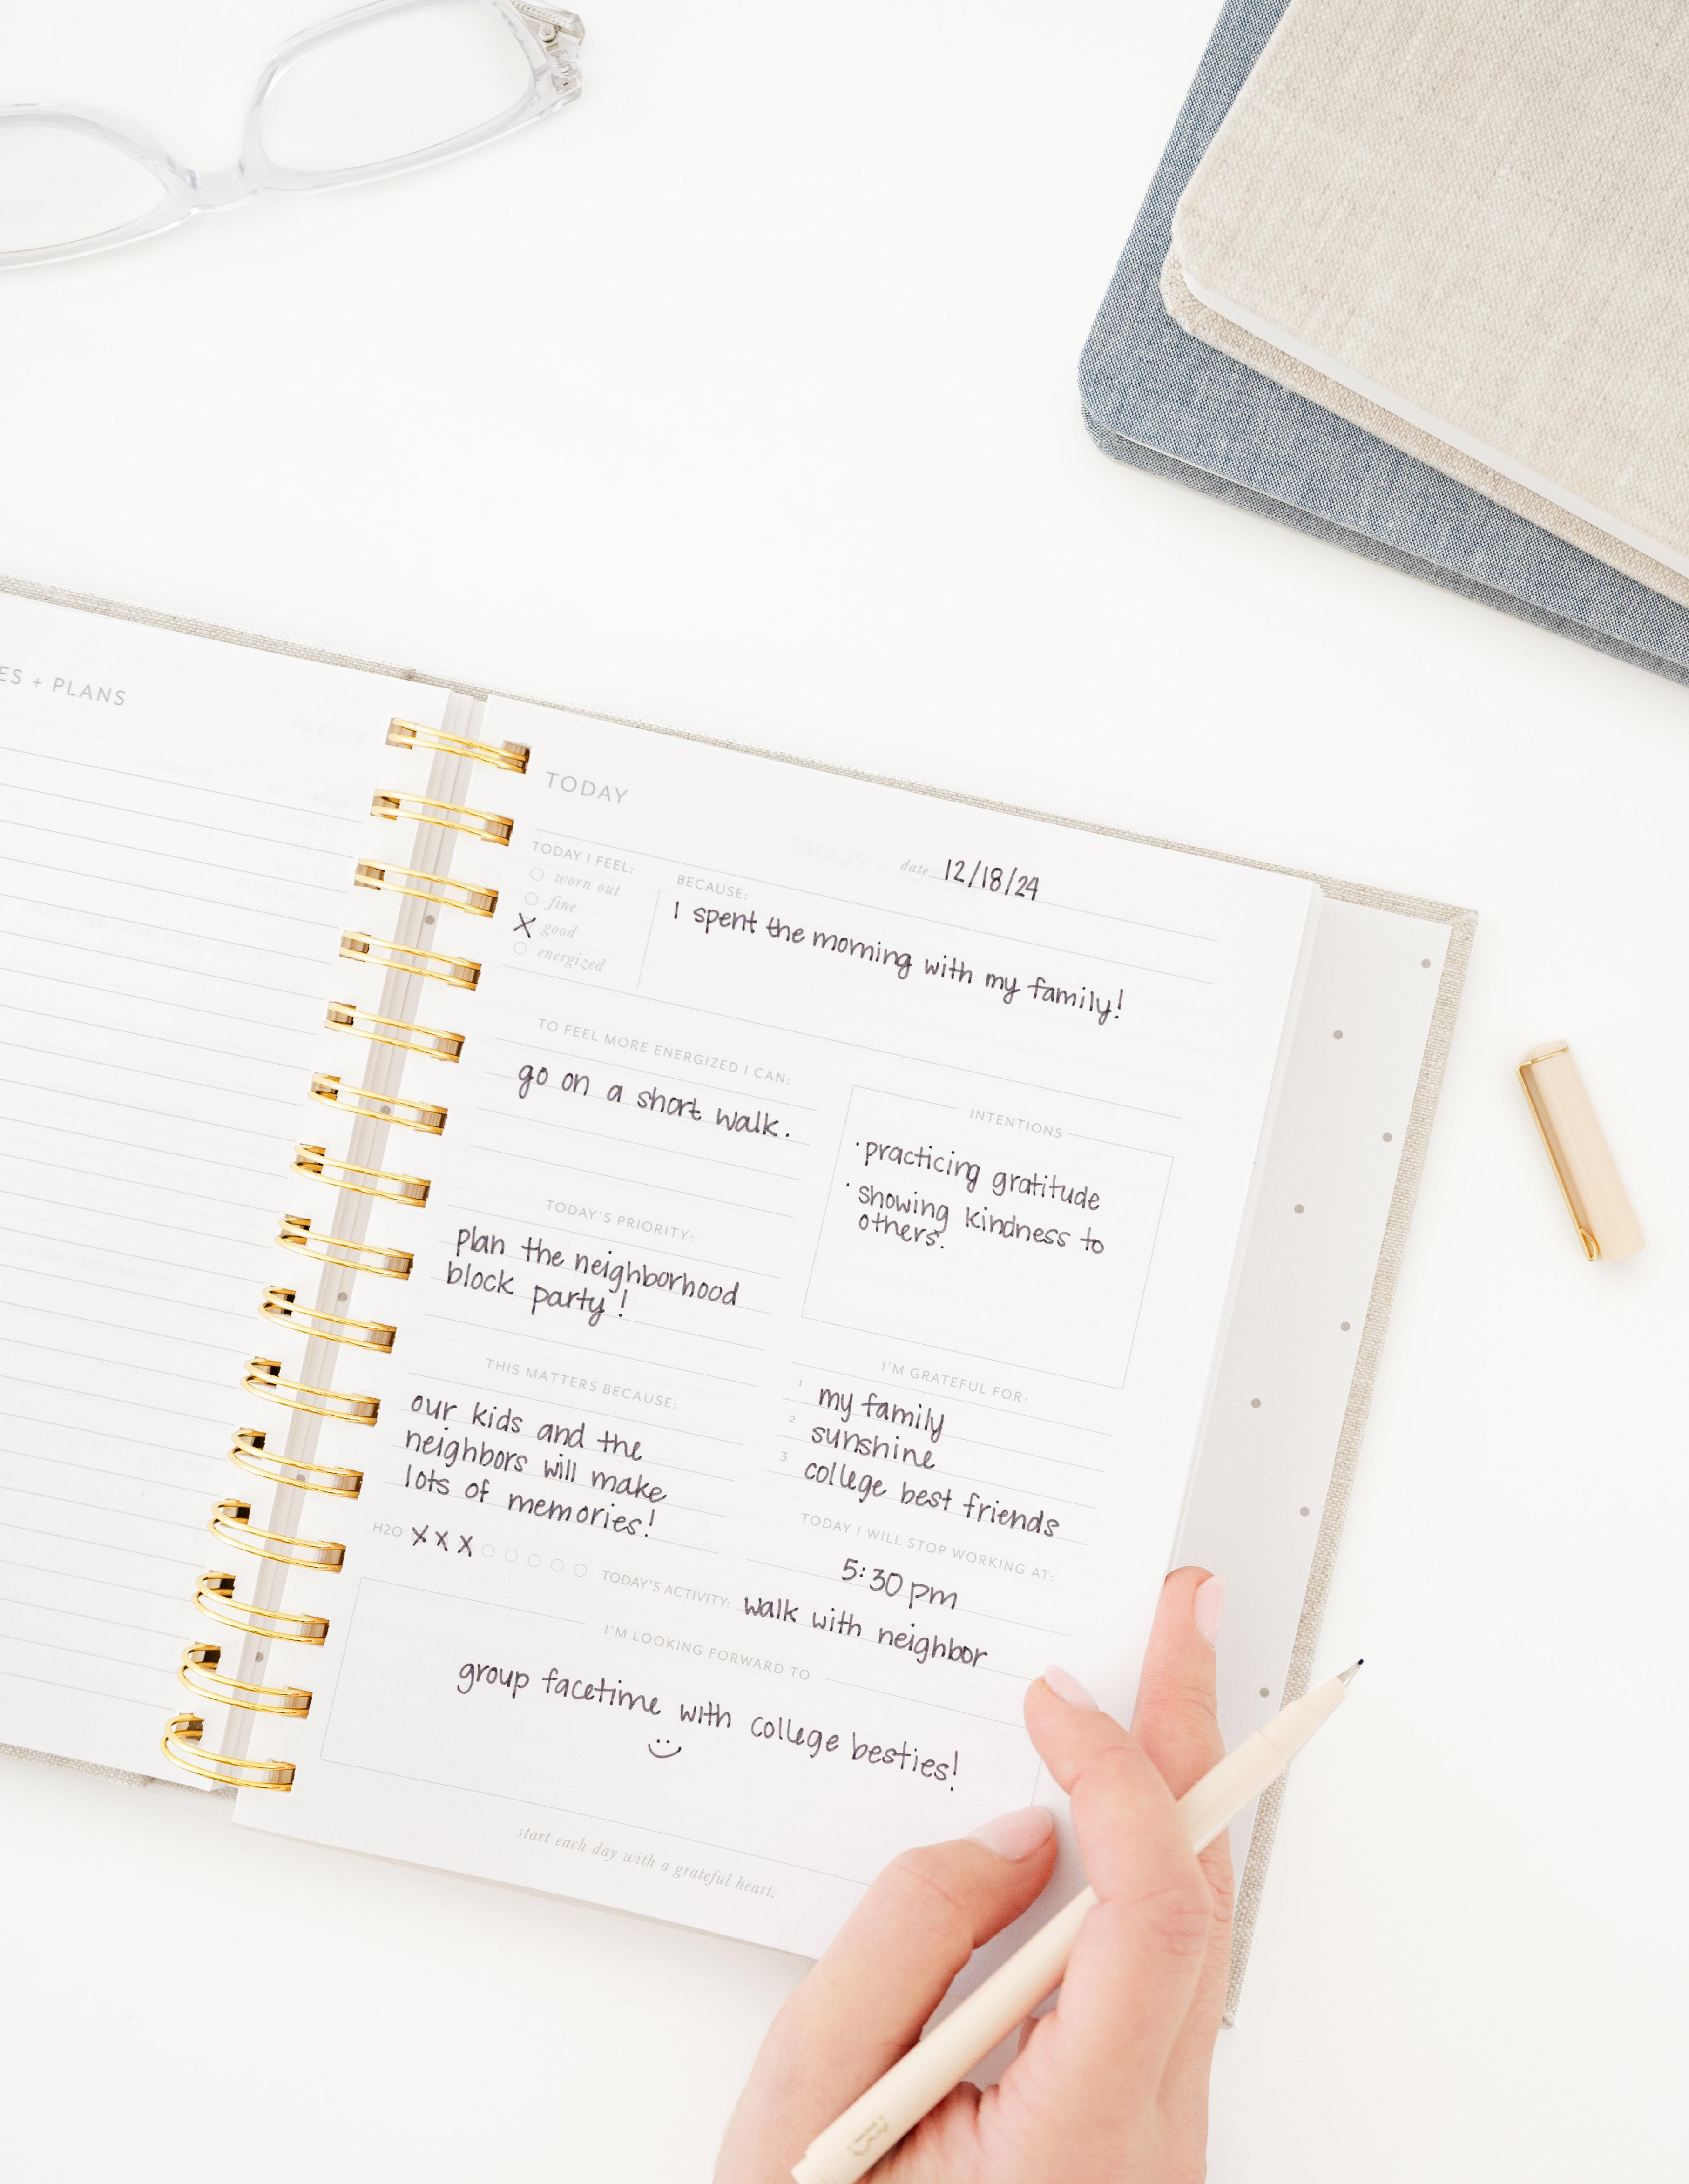 ES + PLANS
TODAY
date 12/18/24
TODAY I FEEL:
worn out
fine
X good
energized
BECAUSE:
I spent the morning with my family!
TO FEEL MORE ENERGIZED I CAN:
go on a short walk.
INTENTIONS
· practicing gratitude
· showing kindness to
others.
TODAY'S PRIORITY:
plan the neighborhood
block party!
THIS MATTERS BECAUSE:
our kids and the
neighbors will make
lots of memories!
I'M GRATEFUL FOR:
1 my family
2 sunshine
3 college best friends
TODAY I WILL STOP WORKING AT:
5:30 pm
H2O X X X
TODAY'S ACTIVITY: walk with neighbor
I'M LOOKING FORWARD TO
group facetime with college besties!
start each day with a grateful heart.